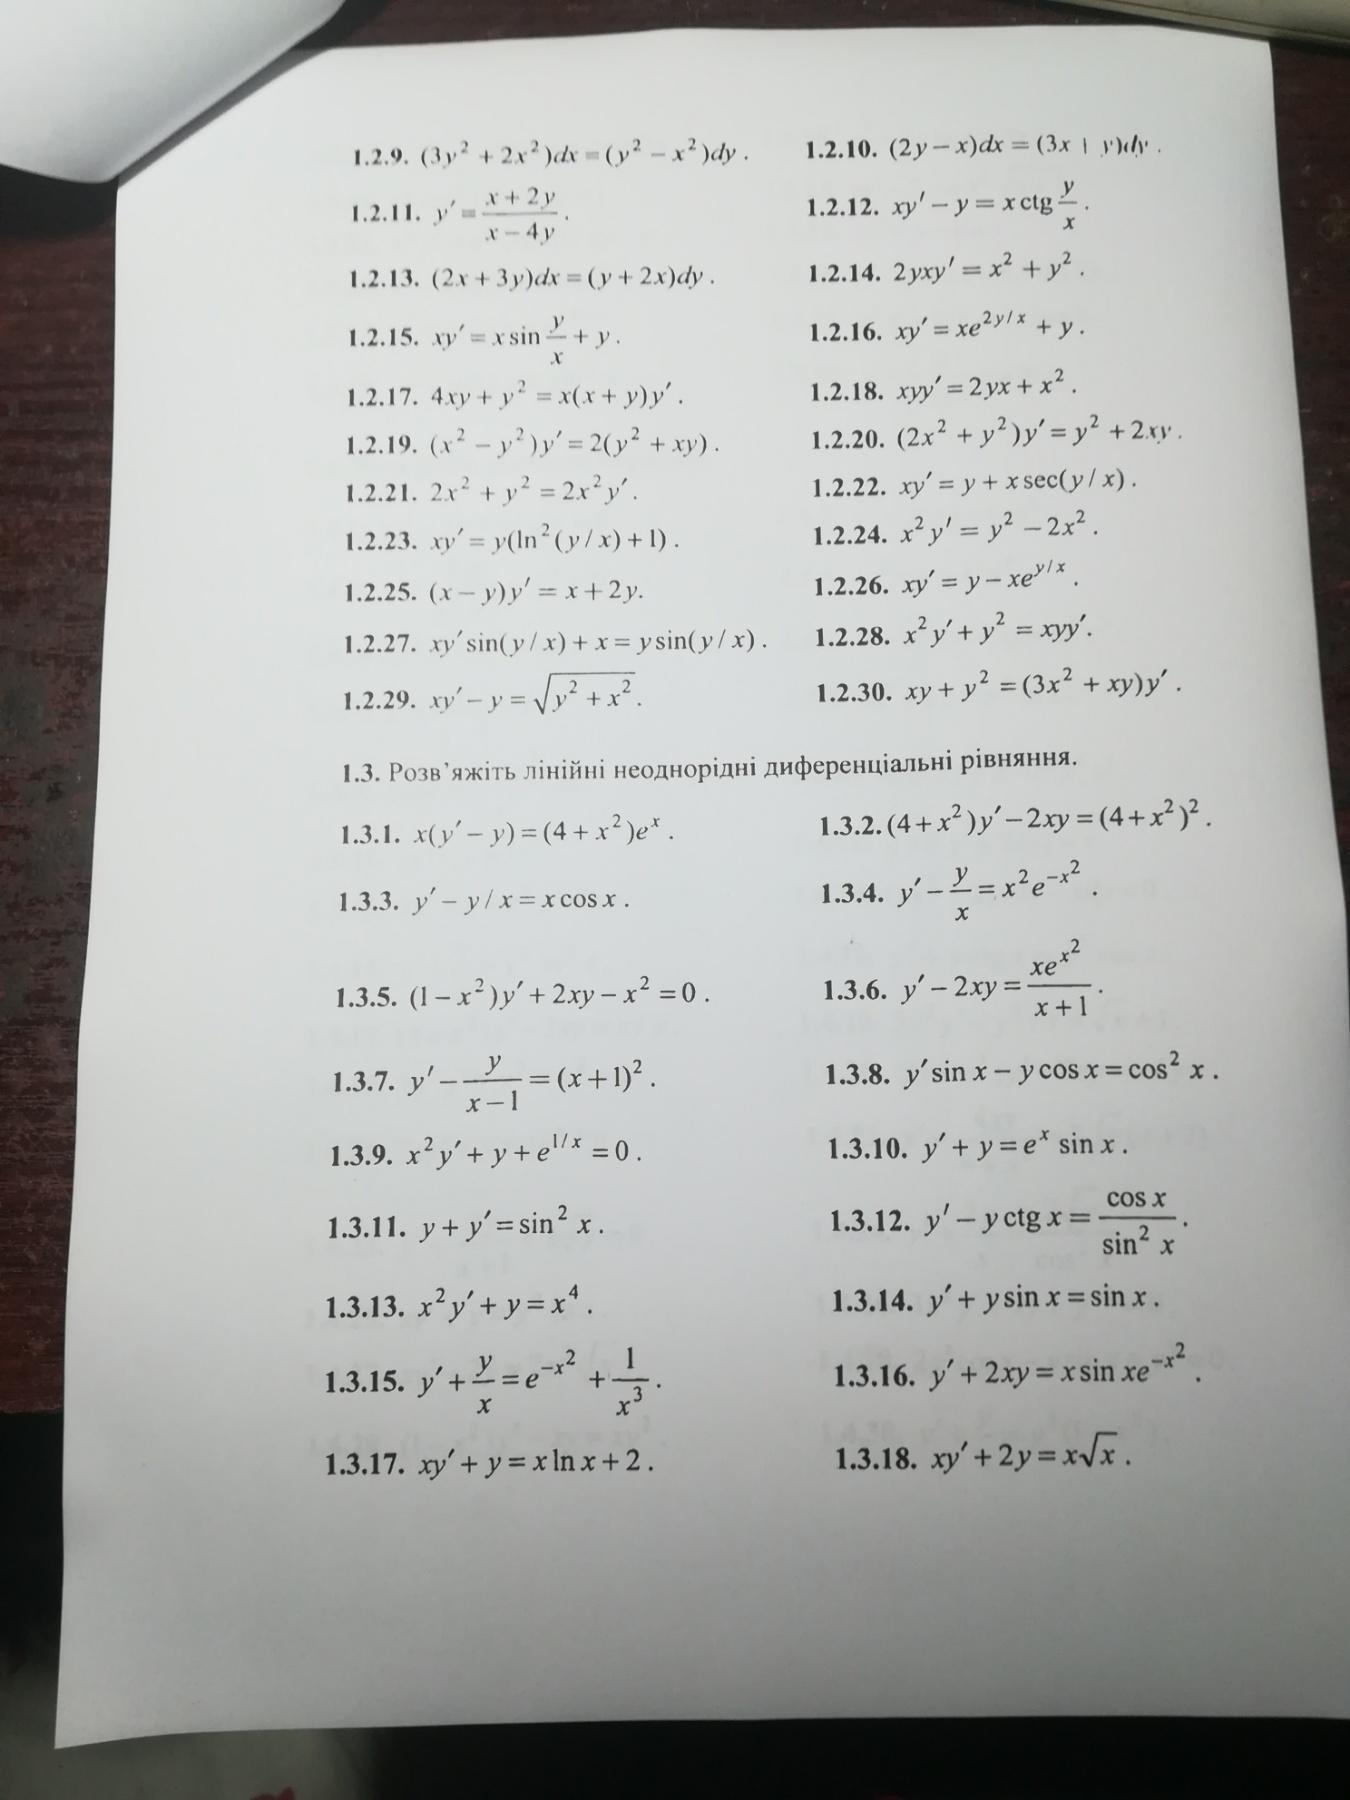 1.2.9. (3y² + 2x²)dx = (y² − x²)dy. 1.2.10. (2y − x)dx = (3x + y)dy.
1.2.11. y′ = (x + 2y)/(x − 4y). 1.2.12. xy′ − y = x ctg y/x.
1.2.13. (2x + 3y)dx = (y + 2x)dy. 1.2.14. 2yxy′ = x² + y².
1.2.15. xy′ = x sin y/x + y. 1.2.16. xy′ = xe^(2y/x) + y.
1.2.17. 4xy + y² = x(x + y)y′. 1.2.18. xyy′ = 2yx + x².
1.2.19. (x² − y²)y′ = 2(y² + xy). 1.2.20. (2x² + y²)y′ = y² + 2xy.
1.2.21. 2x² + y² = 2x²y′. 1.2.22. xy′ = y + x sec(y/x).
1.2.23. xy′ = y(ln²(y/x) + 1). 1.2.24. x²y′ = y² − 2x².
1.2.25. (x − y)y′ = x + 2y. 1.2.26. xy′ = y − xe^(y/x).
1.2.27. xy′ sin(y/x) + x = y sin(y/x). 1.2.28. x²y′ + y² = xyy′.
1.2.29. xy′ − y = √(y² + x²). 1.2.30. xy + y² = (3x² + xy)y′.
1.3. Розв’яжіть лінійні неоднорідні диференціальні рівняння.
1.3.1. x(y′ − y) = (4 + x²)e^x. 1.3.2. (4 + x²)y′ − 2xy = (4 + x²)².
1.3.3. y′ − y/x = x cos x. 1.3.4. y′ − y/x = x²e^(−x²).
1.3.5. (1 − x²)y′ + 2xy − x² = 0. 1.3.6. y′ − 2xy = xe^(x²)/(x + 1).
1.3.7. y′ − y/(x − 1) = (x + 1)². 1.3.8. y′ sin x − y cos x = cos² x.
1.3.9. x²y′ + y + e^(1/x) = 0. 1.3.10. y′ + y = e^x sin x.
1.3.11. y + y′ = sin² x. 1.3.12. y′ − y ctg x = cos x/sin² x.
1.3.13. x²y′ + y = x⁴. 1.3.14. y′ + y sin x = sin x.
1.3.15. y′ + y/x = e^(−x²) + 1/x³. 1.3.16. y′ + 2xy = x sin xe^(−x²).
1.3.17. xy′ + y = x ln x + 2. 1.3.18. xy′ + 2y = x√x.